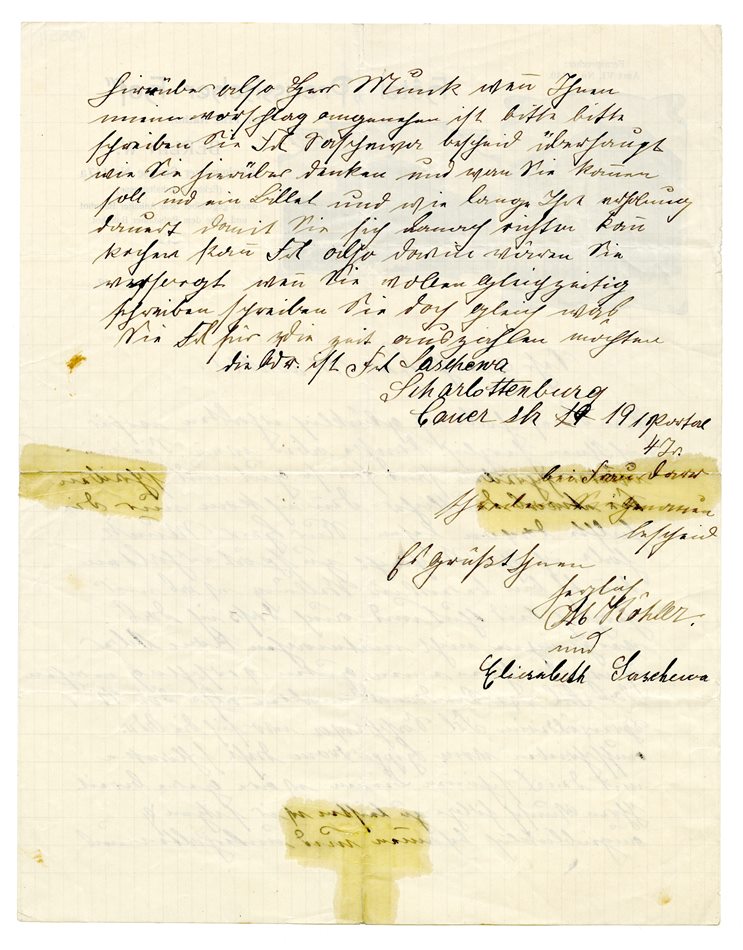 hierüber also Herr Munck wen̅ Ihnen
meinn vorschlag angenehm ist bitte bitte
schreiben Sie Frl Saschewa bescheid überhaupt
wie Sie hierüber denken und wan Sie kom̅en
soll und ein Billet und wie lange Ihre erholung
dauert damit Sie sich danach richten kan̅
kochen kan̅ Frl also darin wären Sie
versorgt wen̅ Sie wollen gleichzeitig
schreiben schreiben Sie doch gleich was
Sie Frl für die zeit auszahlen mochten
die Adr. ist Frl Saschewa
Scharlottenburg
Cauer str 19 19 1 Portal
4 Tr.
bei Frau Darr
schreiben Sie genauen
bescheid
Es grüßt Ihnen
herzlich
Ab Köhler.
und
Eliesabeth Saschewa